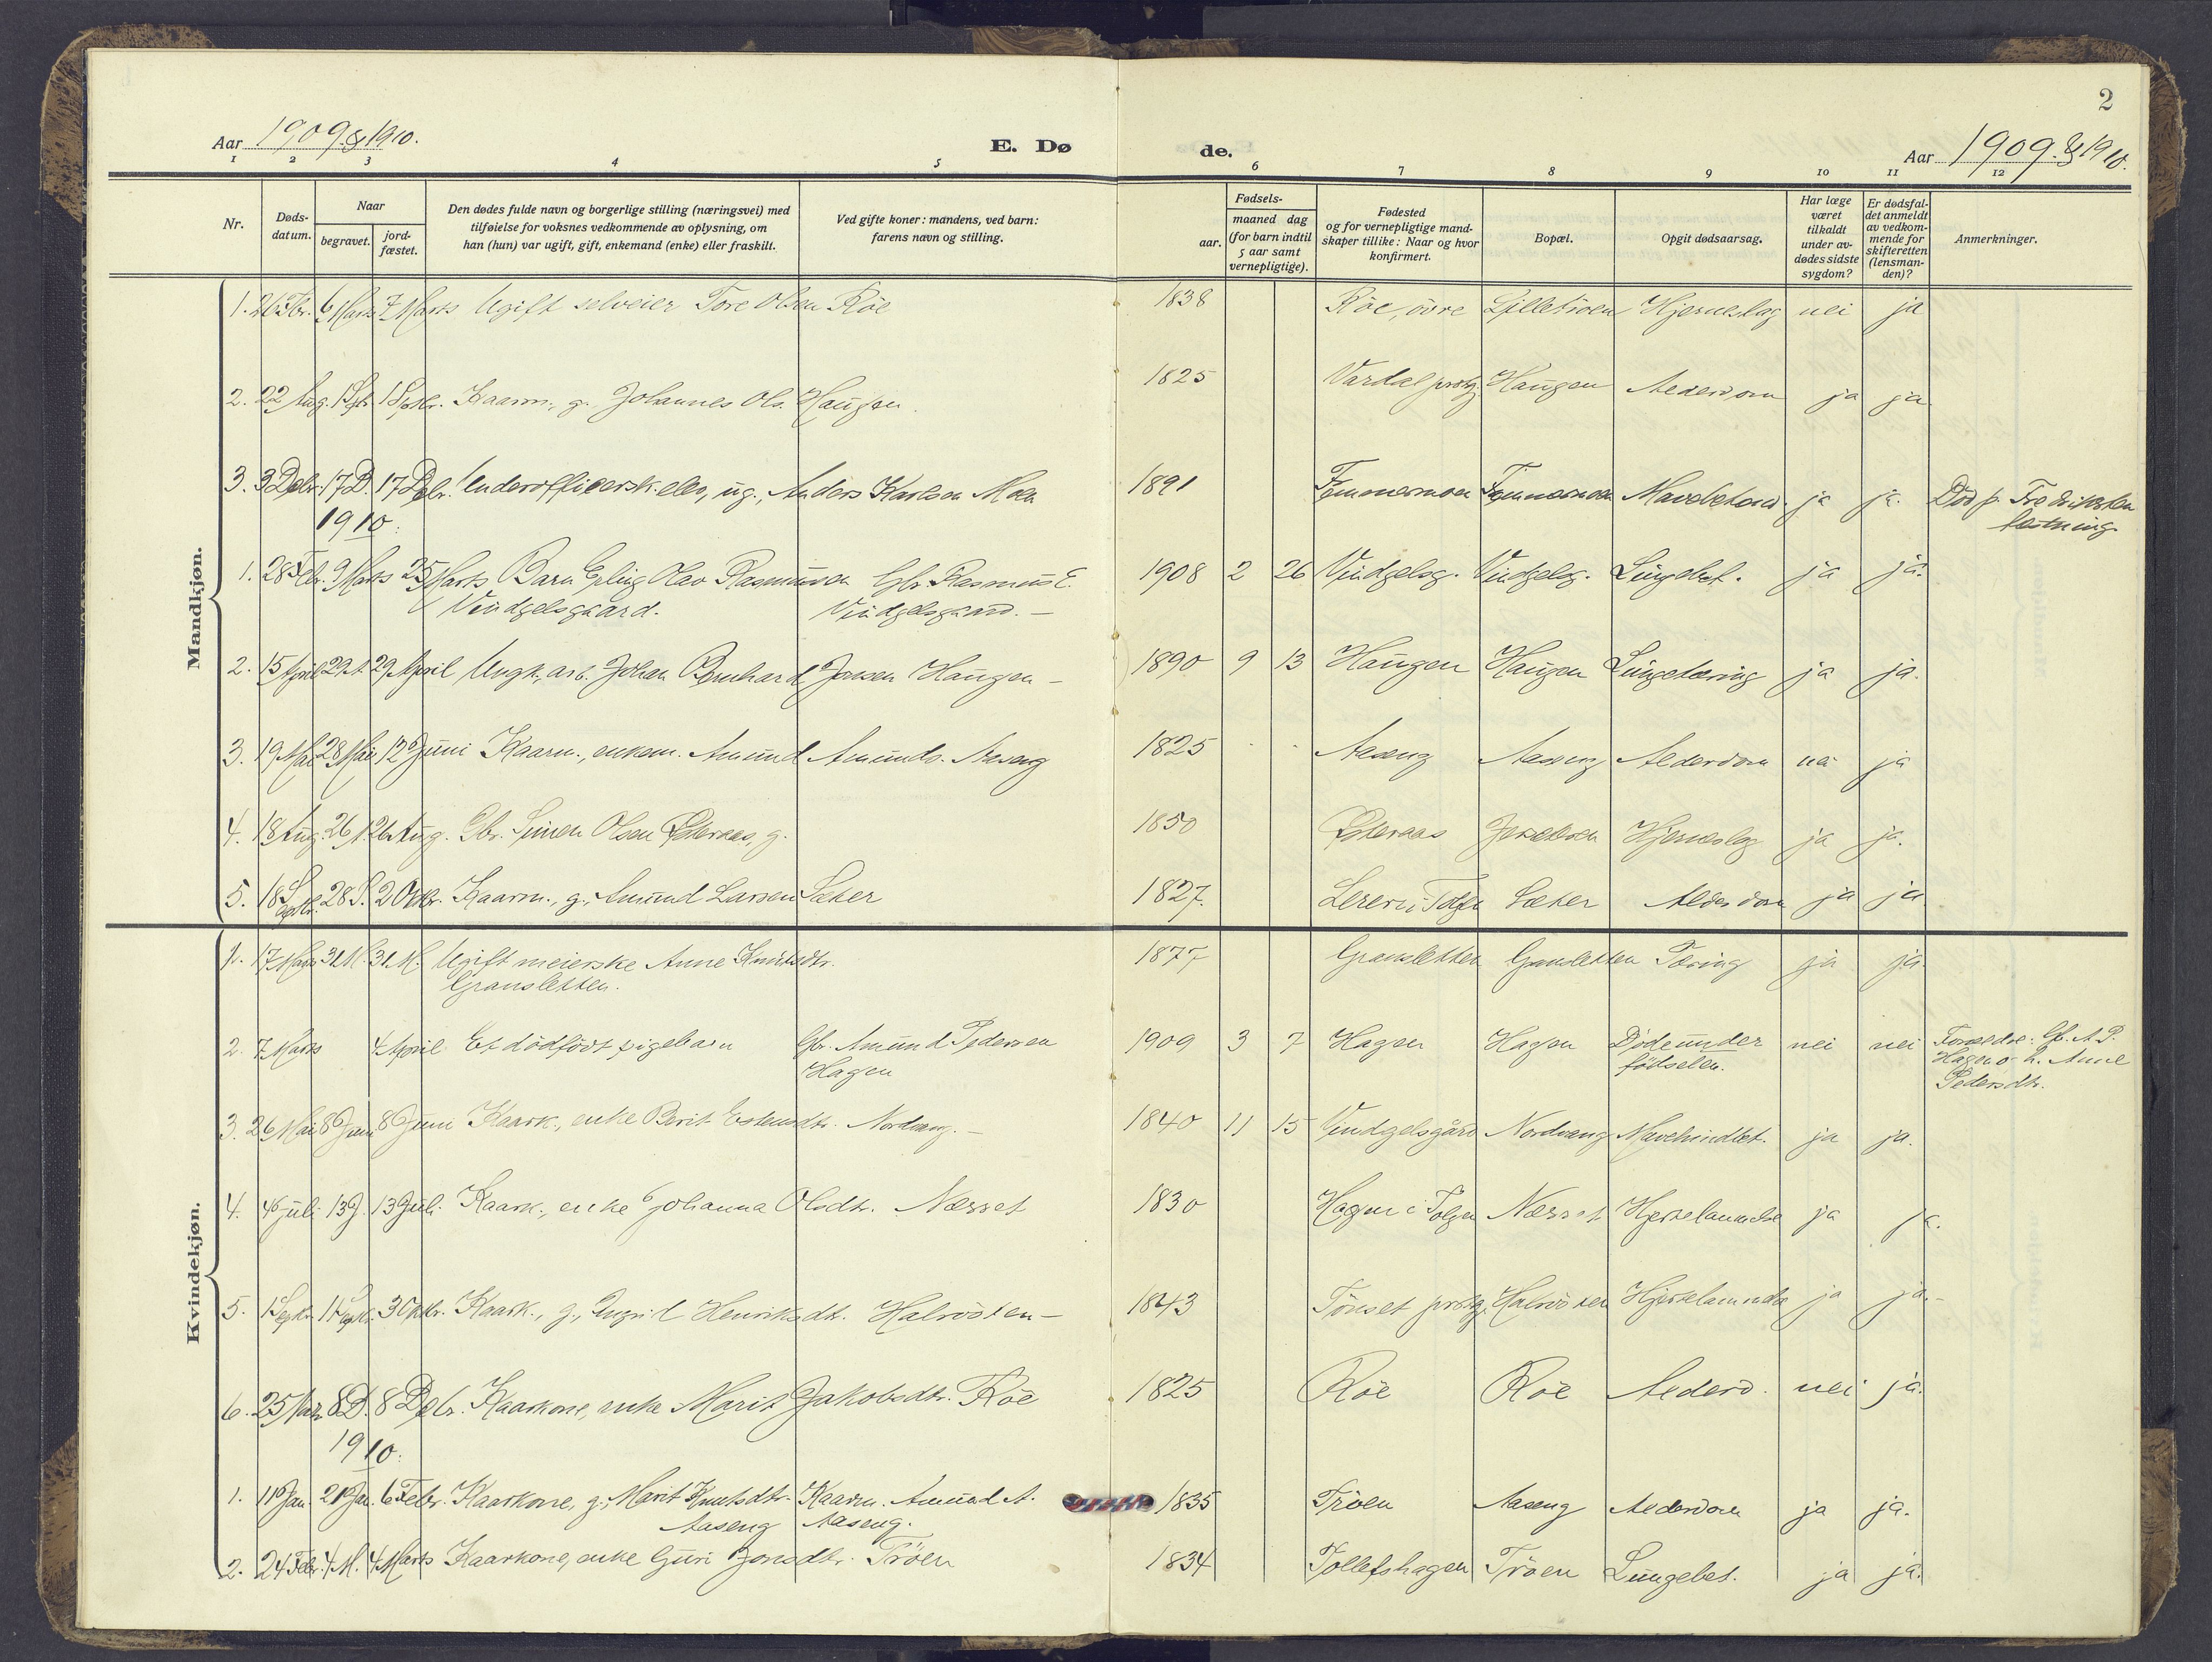 2
Aar 1909 & 1910.
E. Dø
de.
Aar 1909 & 1910.
1 2 3 4 5 6 7 8 9 10 11 12
Nr.
Døds-
datum.
Naar
begravet.
jord-
fæstet.
Den dødes fulde navn og borgerlige stilling (næringsvei) med
tilføielse for voksnes vedkommende av oplysning, om
han (hun) var ugift, gift, enkemand (enke) eller fraskilt.
Ved gifte koner: mandens, ved barn:
farens navn og stilling.
Fødsels-
aar.
maaned dag
(for barn indtil
5 aar samt
vernepligtige).
Fødested
og for vernepligtige mand-
skaper tillike: Naar og hvor
konfirmert.
Bopæl.
Opgit dødsaarsag.
Har læge
været
tilkaldt
under av-
dødes sidste
sygdom?
Er dødsfal-
det anmeldt
av vedkom-
mende for
skifteretten
(lensman-
den)?
Anmerkninger.
Mandkjøn.
1. 26 Febr. 6 Marts 7 Marts Ugift selveier Tore Olsen Röe 1838 Röe, övre Lilletröen Hjerneslag nei ja
2. 22 Aug. 1 Sptr. 1 Sptbr. Kaarm., g. Johannes Ols. Haugen. 1825 Vardal prstg. Haugen Alderdom ja ja
3. 3 Dcbr. 17 D. 17 Dcbr. Underofficersk.elev, ug., Anders Karlsen Moen 1891 Tømmermoen Tømmermoen ja ja. Död p. Fredriksten
fæstning.
1910.
1. 28 Febr. 9 Marts 25 Marts Barn Erling Olav Rasmussen Gbr. Rasmus E. 1908 2 26 Vindgelsg. Vindgelsg. Lungebet. ja ja.
Vindgelsgaard. Vindgelsgaard. —
2. 15 April 29 A. 29 April Ungk., arb. Johan Bernhard Jonsen Haugen — 1890 9 13 Haugen Haugen Lungetæring ja ja.
3. 19 Mai 28 Mai 12 Juni Kaarm., enkem. Amund Amunds. Aaseng 1825 Aaseng Aaseng Alderdom nei ja
4. 18 Aug. 26 A. 26 Aug. Gbr. Simen Olsen Østeraas, g. 1850 Østeraas Hjerneslag ja ja.
5. 18 Septbr. 28 S. 2 Oktbr. Kaarm., g., Amund Larsen Sæter 1827. Leren i Tolgen Sæter Alderdom ja ja
Kvindekjøn.
1. 17 Marts 31 M. 31 M. Ugift meierske Anne Knutsdtr. 1877 Gransletten Gransletten Tæring ja ja.
Gransletten.
2. 7 Marts 4 April Et dödfödt pigebarn Gbr. Amund Pedersen 1909 3 7 Hagen Hagen Döde under nei nei Forældre: Gb. A. P.
Hagen födselen. Hagen o. h. Anne
Pedersdtr.
3. 26 Mai 8 Juni 8 Juni Kaark., enke Berit Estensdtr. Nordvang. — 1840 11 15 Vindgelsgård Nordvang ja ja.
4. 4 juli 13 J. 13 Juli Kaark., enke Johanna Olsdtr. Næsset 1830 Hagen i Tolgen Næsset Hjertelammelse ja ja.
5. 1 Septr. 11 Septr. 3 Oktbr. Kaark., g., Ingrid Henriksdtr. Halvösten — 1843 Tönset prstg. Halvösten Hjertelammelse ja ja. -
6. 25 Novbr. 8 D. 8 Dcbr. Kaarkone, enke Marit Jakobsdtr. Röe 1825 Röe Röe Alderd. nei ja.
1910.
1. 11 Jan. 21 Jan. 6 Febr. Kaarkone, g., Marit Knutsdtr. Kaarm. Amund A. 1835 Tröen Aaseng Alderdom ja ja.
Aaseng Aaseng.
2. 24 Febr. 4 M. 4 Marts Kaarkone, enke Guri Jonsdtr. Tröen 1834 Tollefshagen Tröen Lungebet. ja ja.